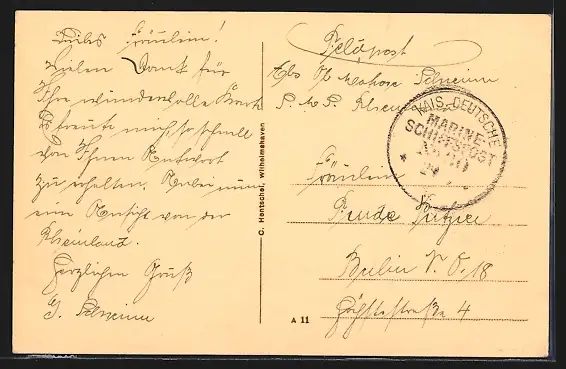 Liebes Fräulein!
Vielen Dank für
Ihre wundervolle Karte
Es freute mich, so schnell
von Ihnen Antwort
zu erhalten. Anbei nun
eine Ansicht von der
Rheinland.
Herzlichen Gruß
J. Schramm
C. Hentschel, Wilhelmshaven
A 11
Feldpost
Abs. Matrose Schramm
S. M. S. Rheinland
KAIS. DEUTSCHE
MARINE-
SCHIFFSPOST
Fräulein
Berlin N. O. 18
Höchstestraße 4